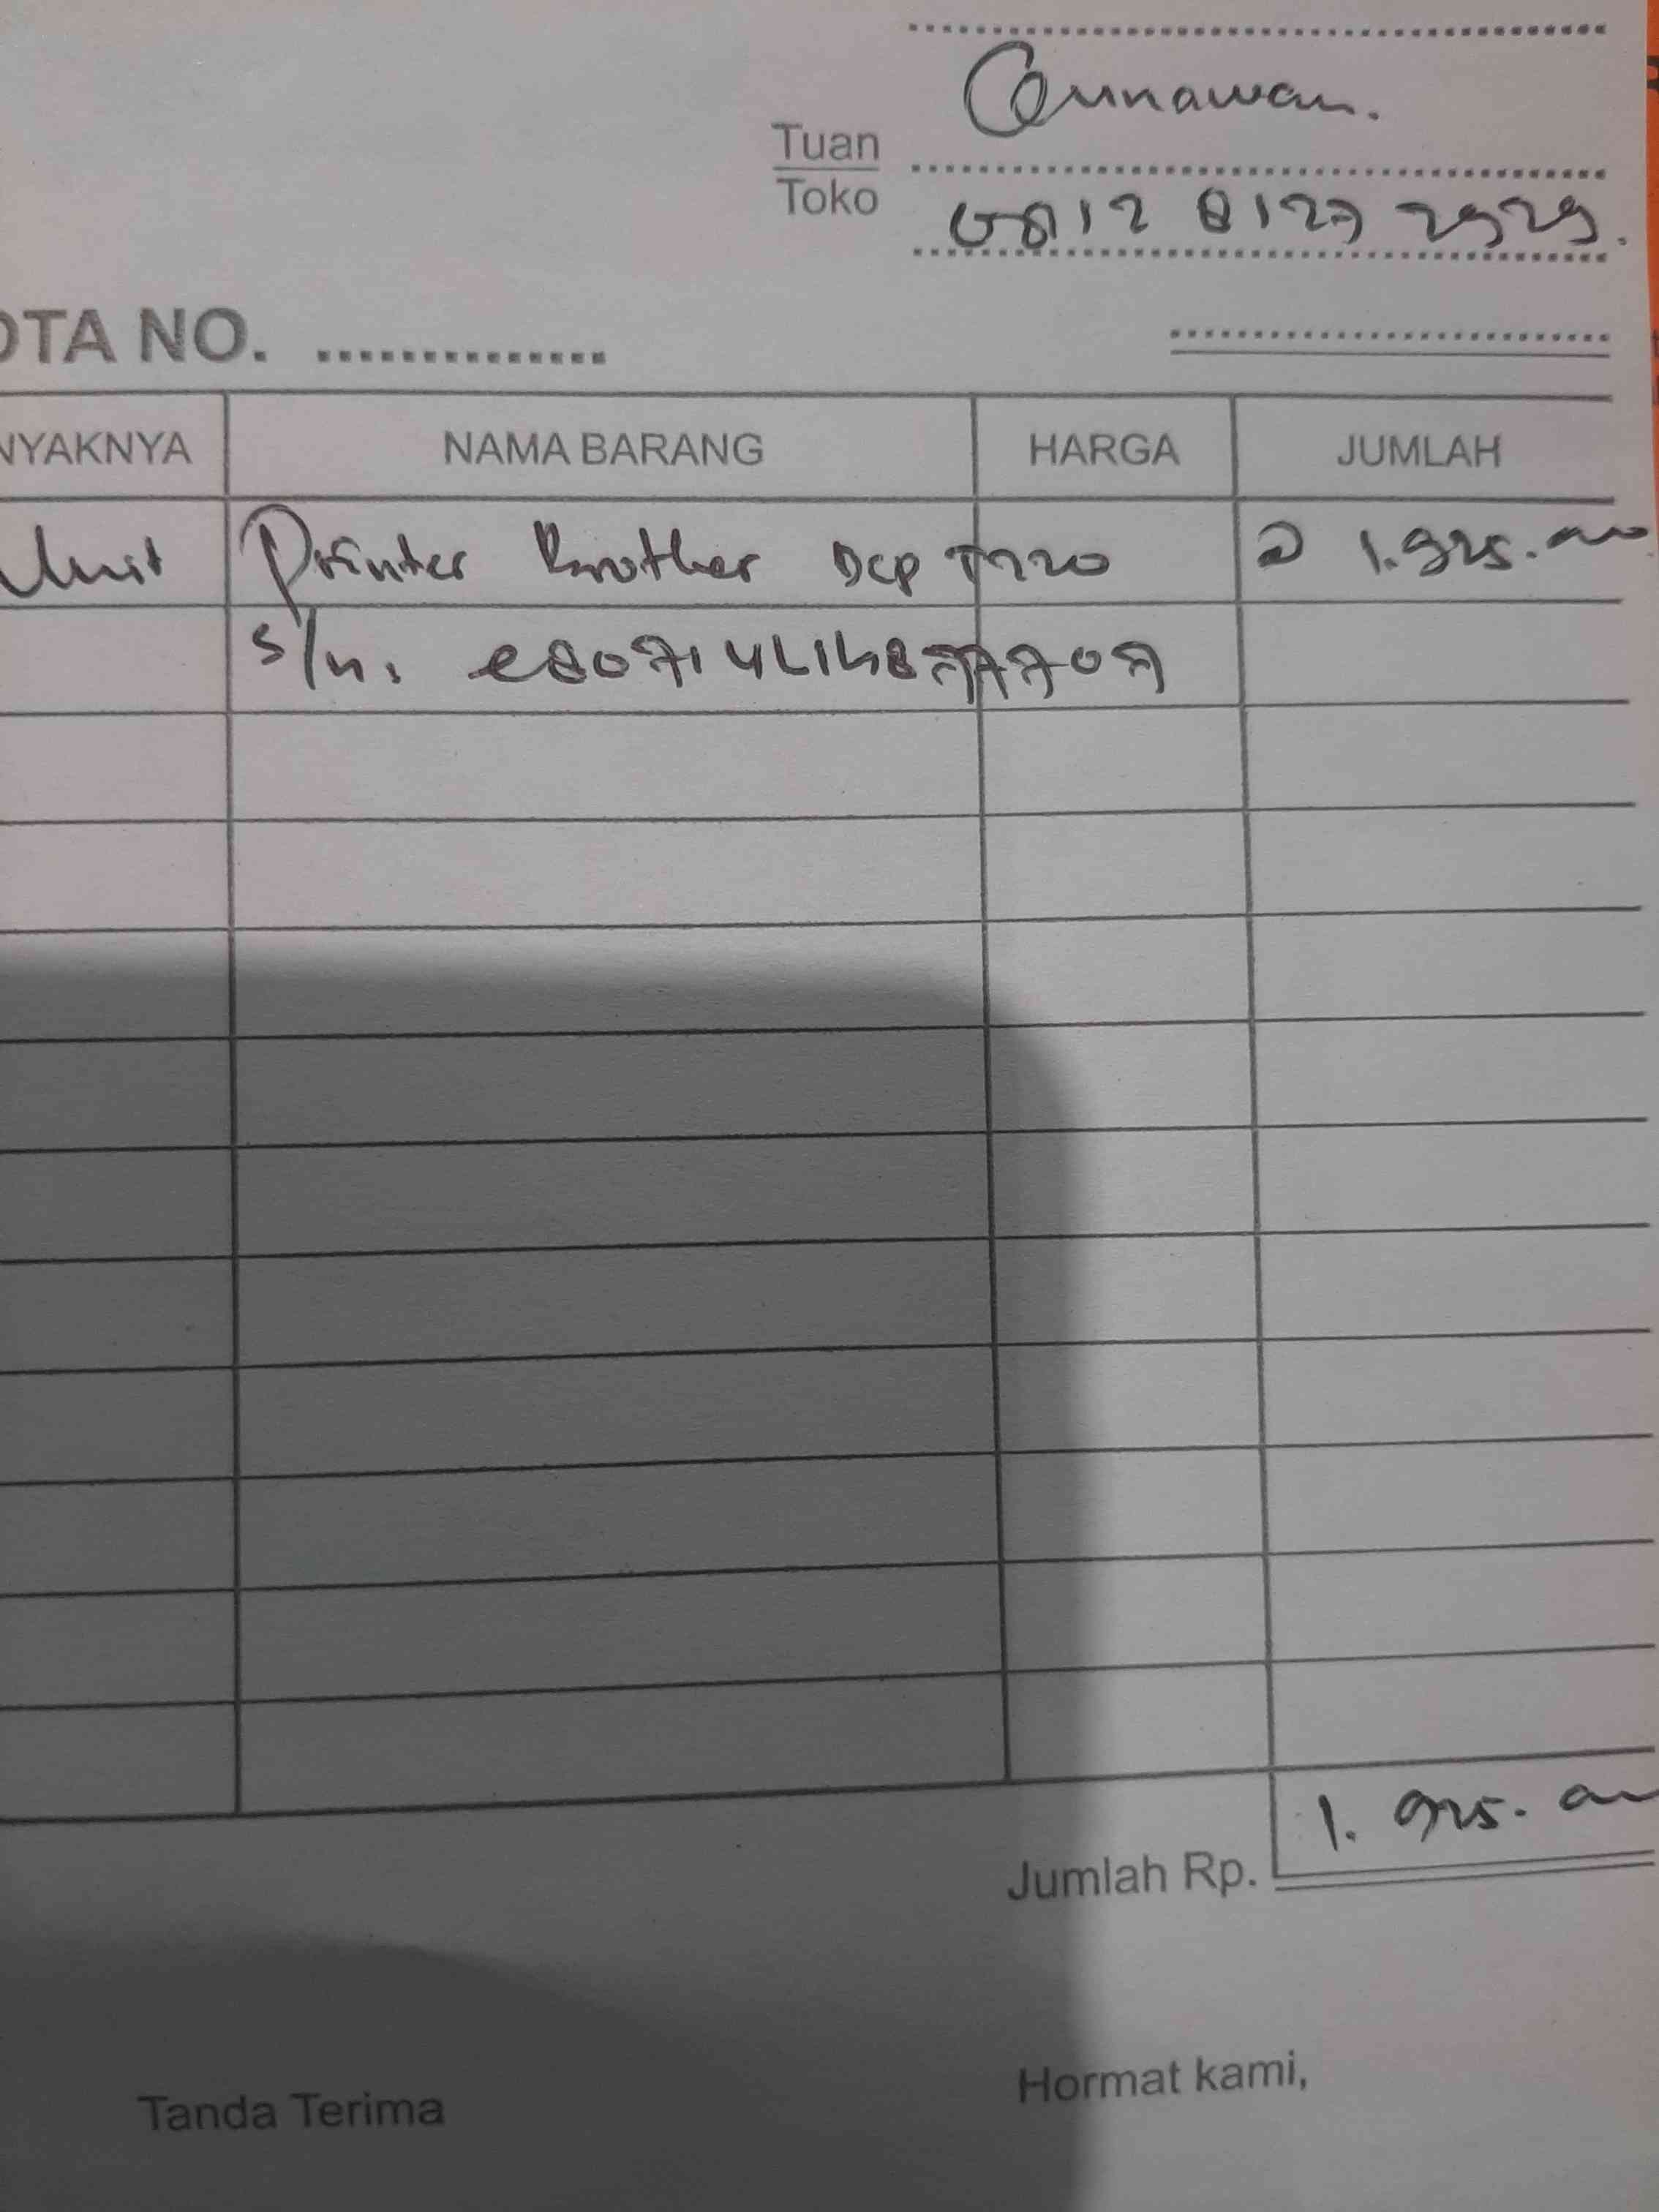 Gunawan.
Tuan
Toko
0812 8127 2929.
OTA NO. ..............
NYAKNYA NAMA BARANG HARGA JUMLAH
Unit Printer Brother DCP T220 @ 1.925.000
S/N:
1.925.000
Jumlah Rp.
Tanda Terima Hormat kami,